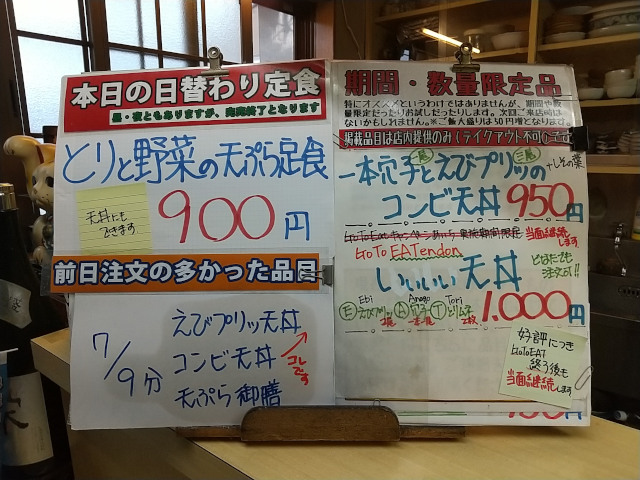 本日の日替わり定食
昼・夜ともありますが、肉完終了となります
とりと野菜の天ぷら定食
天丼にも
できます
900円
前日注文の多かった品目
7/9分
えびプリッ天丼
コンビ天丼
天ぷら御膳
コレです
期間・数量限定品
特にオススメというわけではありませんが、期間や数
量限定だったりお試しだったりします。次回ご来店時は
ないかもしれません。※ご飯大盛りは50円増となります。
掲載品目は店内提供のみ(テイクアウト不可)
一本穴子とえびプリッの
+しその葉
コンビ天丼 950円
GoToEatキャンペーン
実施期間限定
当面継続します
GoTo EATendon
いいいい天丼
どなたでも
注文可!!
Ebi Anago Tori
E A T
1,000円
好評につき
GoToEAT
終了後も
当面継続します